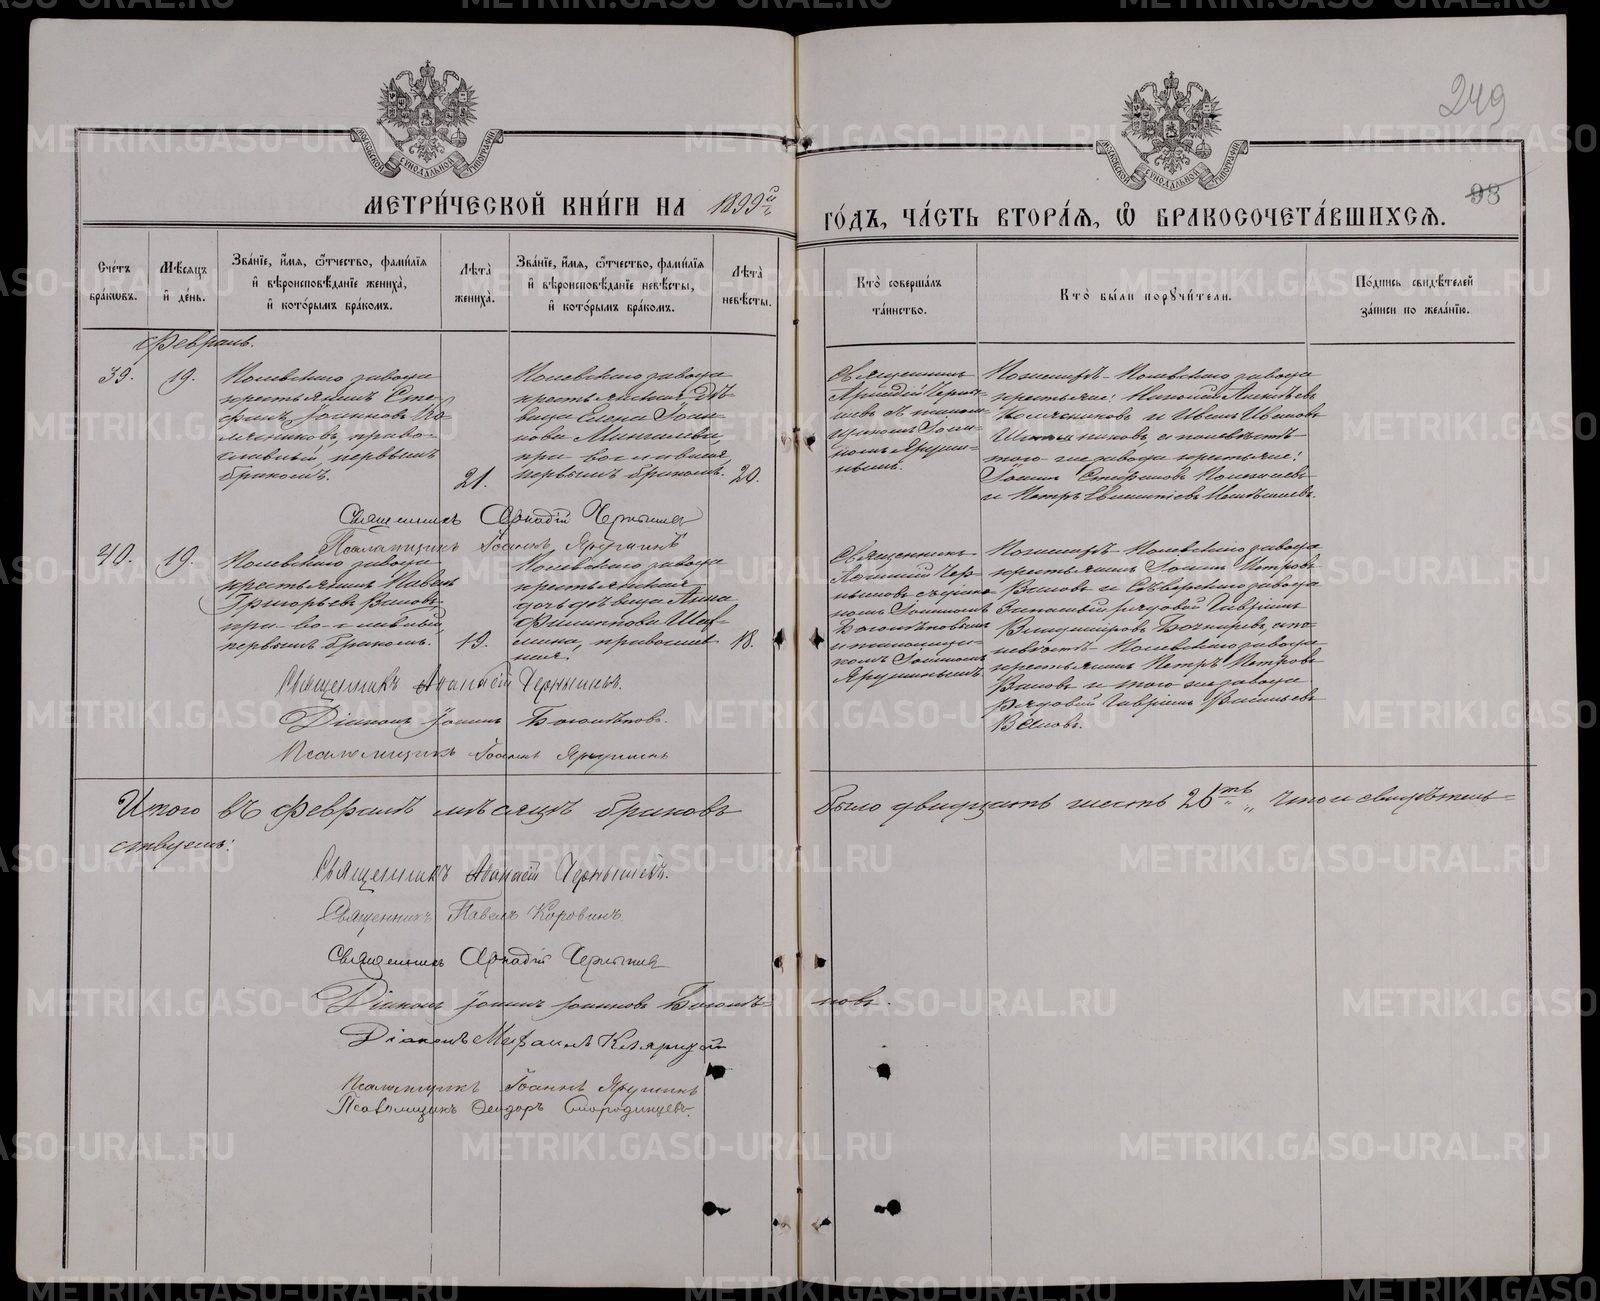 249
98
МОСКОВСКОЙ СѴНОДАЛЬНОЙ ТИПОГРАФІИ
МОСКОВСКОЙ СѴНОДАЛЬНОЙ ТИПОГРАФІИ
МЕТРИ́ЧЕСКОЙ КНИ́ГИ НА 1899й
ГО́ДЪ, ЧА́СТЬ ВТОРА́Ѧ, Ѽ БРАКОСОЧЕТА́ВШИХСѦ.
Сче́тъ бра́кѡвъ.
Мѣ́сѧцъ и҆ де́нь.
Зва́нїе, и҆́мѧ, ѻ҆́тчество, фами́лїѧ и҆ вѣроисповѣ́данїе жениха̀, и҆ кото́рымъ бра́комъ.
Лѣ́та̀ жениха̀.
Зва́нїе, и҆́мѧ, ѻ҆́тчество, фами́лїѧ и҆ вѣроисповѣ́данїе невѣ́сты, и҆ кото́рымъ бра́комъ.
Лѣ́та̀ невѣ́сты.
Кто̀ соверша́лъ та́инство.
Кто̀ бы́ли порꙋчи́тели.
По́дпись свидѣ́телей за́писи по жела́нїю.
Февраль.
39.
19.
Полевскаго завода
крестьянинъ Сте-
фанъ Іоанновъ По-
мячниковъ, право-
славный, первымъ
бракомъ.
21.
Полевскаго завода
крестьянская дѣ-
вица Елена Іоан-
нова
православная,
первымъ бракомъ.
20.
Священникъ
Аркадій Черны-
шевъ съ псалом-
щикомъ Іоан-
номъ Яруши-
нымъ.
По женихѣ - Полевскаго завода
крестьяне: Николай Алексѣевъ
и Иванъ Ивановъ
а по невѣстѣ -
того же завода крестьяне:
Іоаннъ Стефановъ
и Петръ
Священникъ Аркадій Чернышевъ
Псаломщикъ Іоаннъ Ярушинъ
40.
19.
Полевскаго завода
крестьянинъ Павелъ
Григорьевъ Вяловъ,
православный,
первымъ бракомъ.
19.
Полевскаго завода
крестьянская
дочь дѣвица Анна
Филиппова
православ
ная.
18.
Священникъ
Аѳанасій Чер-
нышевъ съ діако-
номъ Іоанномъ
Боголѣповымъ
и псаломщи-
комъ Іоанномъ
Ярушинымъ.
По женихѣ - Полевскаго завода
крестьянинъ Іоаннъ Петровъ
Вяловъ и Сѣверскаго завода
запасный рядовой Гавріилъ
Владиміровъ Бочкаревъ, а по
невѣстѣ - Полевскаго завода
крестьянинъ Петръ Петровъ
Вяловъ и того же завода
рядовой Гавріилъ Васильевъ
Вяловъ.
Священникъ Аѳанасій Чернышевъ.
Діаконъ Іоаннъ Боголѣповъ.
Псаломщикъ Іоаннъ Ярушинъ
Итого въ Февралѣ мѣсяцѣ браковъ было двадцать шесть 26ть что и свидѣтель-
ствуемъ:
Священникъ Аѳанасій Чернышевъ.
Священникъ Павелъ Коровинъ.
Священникъ Аркадій Чернышевъ
Діаконъ Іоаннъ Іоанновъ Боголѣ- повъ.
Діаконъ
Псаломщикъ Іоаннъ Ярушинъ
Псаломщикъ Ѳеодоръ Смородинцевъ.
METRIKI.GASO-URAL.RU